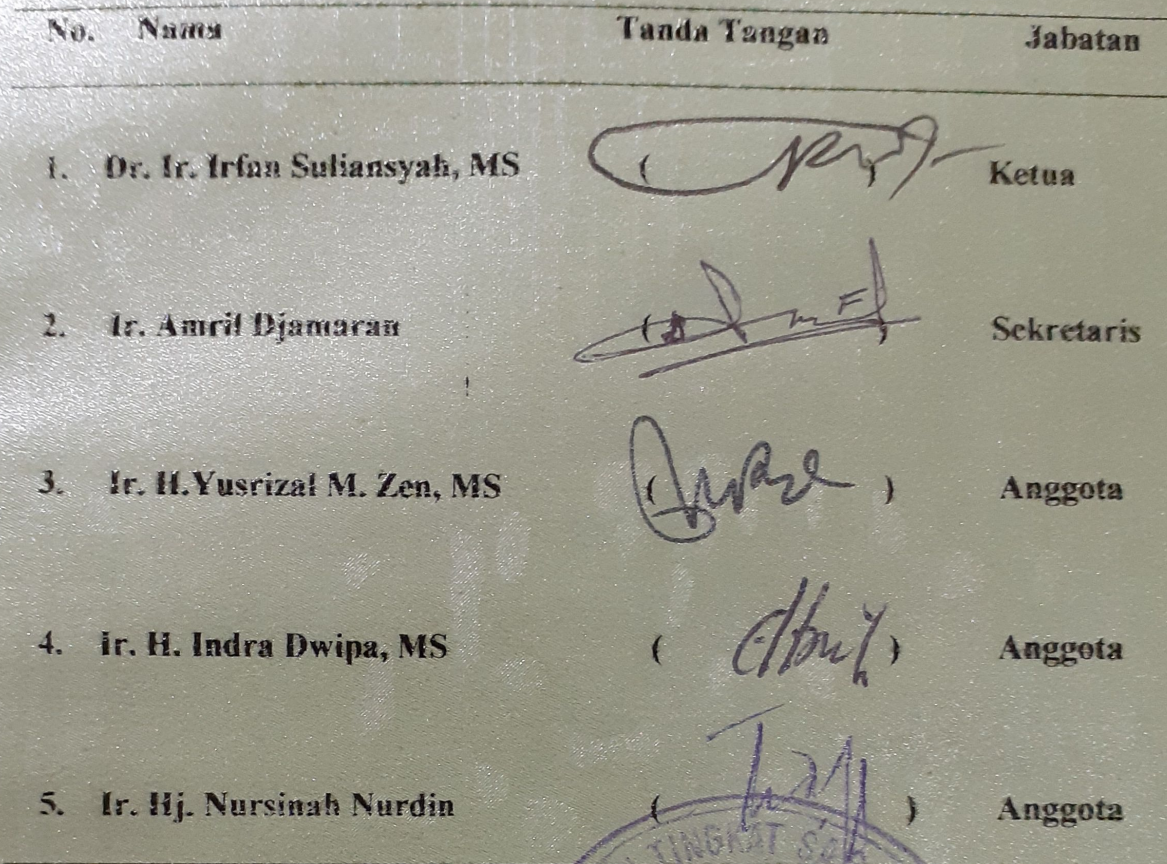 No. Nama Tanda Tangan Jabatan
1. Dr. Ir. Irfan Suliansyah, MS ( ) Ketua
2. Ir. Amril Djamaran ( ) Sekretaris
3. Ir. H.Yusrizal M. Zen, MS ( ) Anggota
4. Ir. H. Indra Dwipa, MS ( ) Anggota
5. Ir. Hj. Nursinah Nurdin ( ) Anggota
TINGKAT